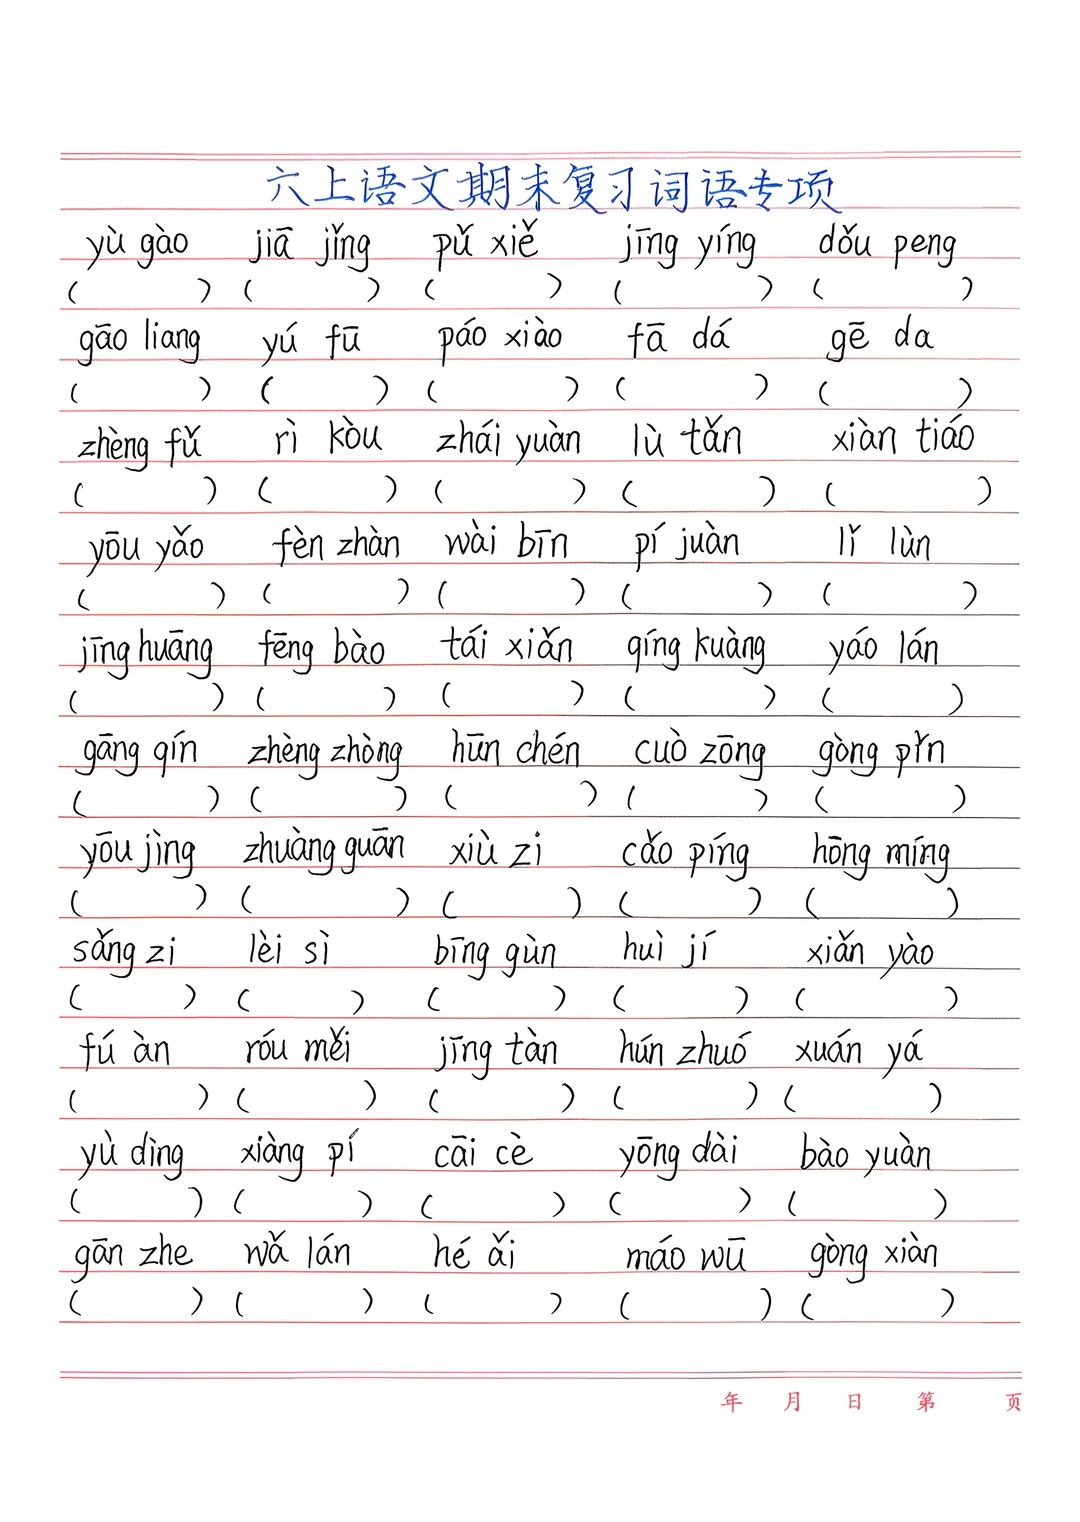 六上语文期末复习词语专项
yù gào jiā jǐng pǔ xiě jīng yíng dǒu peng
( ) ( ) ( ) ( ) ( )
gāo liang yú fū páo xiào fā dá gē da
( ) ( ) ( ) ( ) ( )
zhèng fǔ rì kòu zhái yuàn lù tǎn xiàn tiáo
( ) ( ) ( ) ( ) ( )
yōu yǎo fèn zhàn wài bīn pí juàn lǐ lùn
( ) ( ) ( ) ( ) ( )
jīng huāng fēng bào tái xiǎn qíng kuàng yáo lán
( ) ( ) ( ) ( ) ( )
gāng qín zhèng zhòng hūn chén cuò zōng gòng pǐn
( ) ( ) ( ) ( ) ( )
yōu jìng zhuàng guān xiù zi cǎo píng hōng míng
( ) ( ) ( ) ( ) ( )
sǎng zi lèi sì bīng gùn huì jí xiǎn yào
( ) ( ) ( ) ( ) ( )
fú àn róu měi jīng tàn hún zhuó xuán yá
( ) ( ) ( ) ( ) ( )
yù dìng xiàng pí cāi cè yōng dài bào yuàn
( ) ( ) ( ) ( ) ( )
gān zhe wǎ lán hé ǎi máo wū gòng xiàn
( ) ( ) ( ) ( ) ( )
年 月 日 第 页